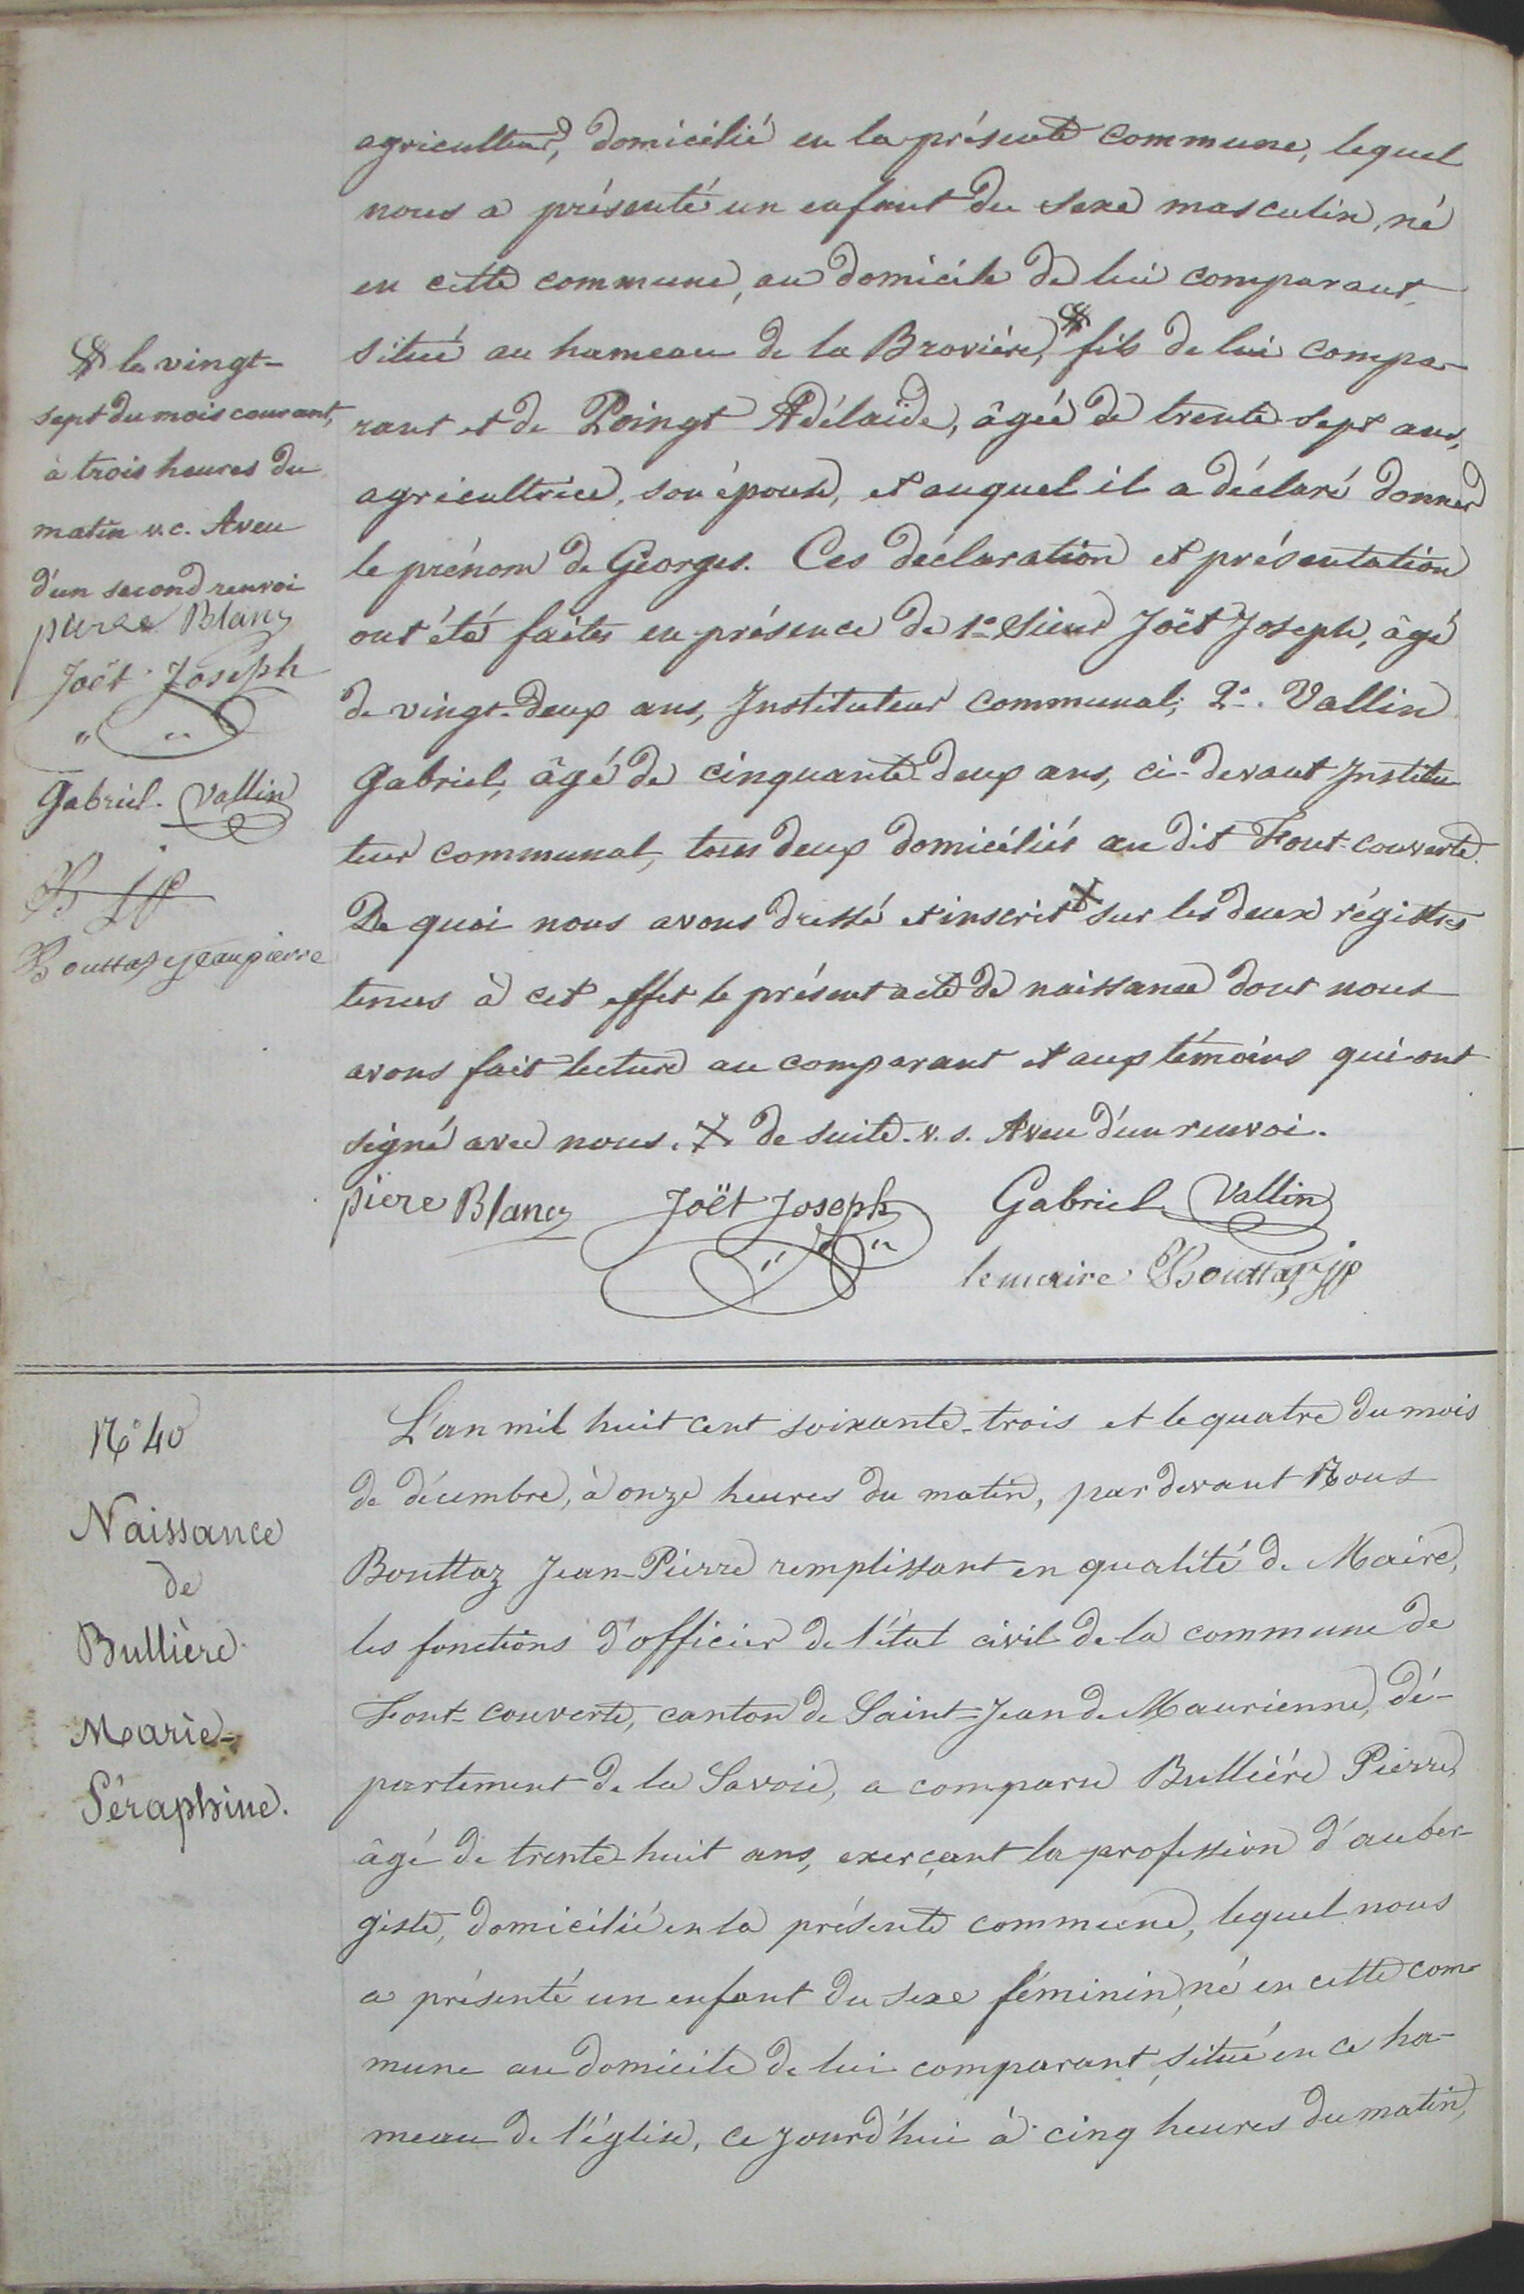 agriculteur, domicilié en la présente commune, lequel
nous a présenté un enfant du sexe masculin, né
en cette commune, au domicile de lui comparant,
situé au hameau de la Brovière, fils de lui compa-
rant et de Poingt Adélaïde, âgée de trente-sept ans,
agricultrice, son épouse, et auquel il a déclaré donner
le prénom de Georges. Ces déclaration et présentation
ont été faites en présence de 1° Sieur Joët Joseph, âgé
de vingt-deux ans, Instituteur communal; 2°. Vallin
Gabriel, âgé de cinquante-deux ans, ci-devant Institu
teur communal, tous deux domiciliés au dit Font-couverte.
De quoi nous avons dressé et inscrit X sur les deux régistres
tenus à cet effet le présent acte de naissance dont nous
avons fait lecture au comparant et aux témoins qui ont
signé avec nous. X de suite. v. s. Aveu d'un renvoi.
piere Blanc Joët Joseph Gabriel Vallin
le maire Bouttaz jp
le vingt-
sept du mois courant,
à trois heures du
matin v.c. Aveu
d'un second renvoi
piere Blanc
Joët Joseph
Gabriel Vallin
B jp
Bouttaz jeanpierre
N° 40
Naissance
de
Bullière
Marie-
Séraphine.
L'an mil huit cent soixante-trois et le quatre du mois
de décembre, à onze heures du matin, par devant Nous
Bouttaz Jean-Pierre remplissant en qualité de Maire,
les fonctions d'officier de l'état civil de la commune de
Font-couverte, canton de Saint-Jean de Maurienne, dé-
partement de la Savoie, a comparu Bullière Pierre,
âgé de trente-huit ans, exerçant la profession d'auber-
giste, domicilié en la présente commune, lequel nous
a présenté un enfant du sexe féminin, né en cette com-
mune au domicile de lui comparant, situé en ce ha-
meau de l'église, ce jourd'hui à cinq heures du matin,